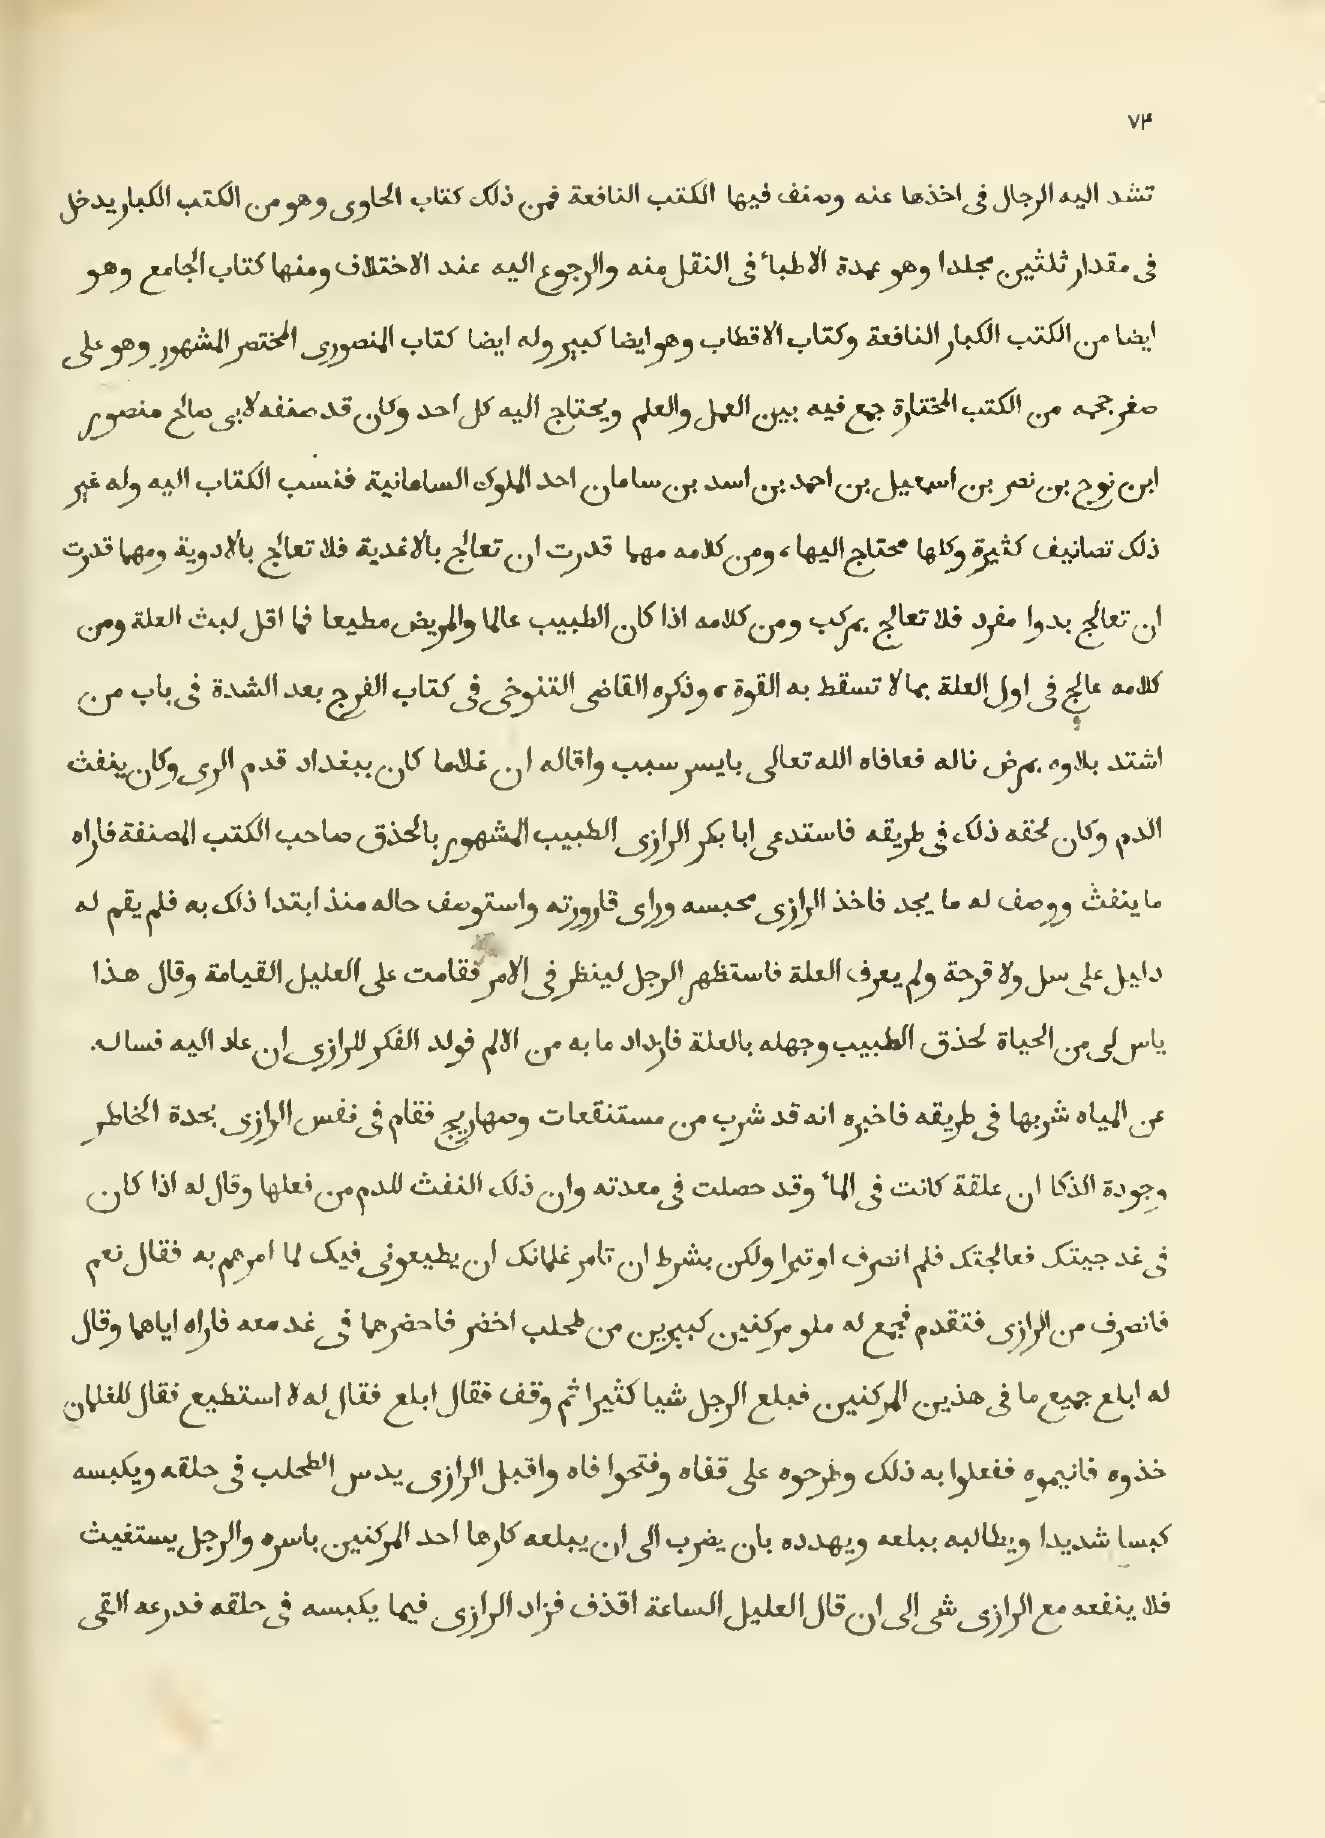 ٧٤
تشد اليه الرجال فى اخذها عنه وصنف فيها الكتب النافعة فمن ذلك كتاب الحاوى وهو من الكتب الكبار يدخل
فى مقدار ثلثين مجلدا وهو عمدة الاطبأ فى النقل منه والرجوع اليه عند الاختلاف ومنها كتاب الجامع وهو
ايضا من الكتب الكبار النافعة وكتاب الاقطاب وهو ايضا كبير وله ايضا كتاب المنصورى المختصر المشهور وهو على
صغر حجمه من الكتب المختارة جمع فيه بين العمل والعلم ويحتاج اليه كل احد وكان قد صنفه لابى صالح منصور
ابن نوح بن نصر بن اسمعيل بن احمد بن اسد بن سامان احد الملوك السامانية فنسب الكتاب اليه وله غير
ذلك تصانيف كثيرة وكلها محتاج اليها، ومن كلامه مهما قدرت ان تعالج بالاغدية فلا تعالج بالادوية ومهما قدرت
ان تعالج بدوا مفرد فلا تعالج بمركب ومن كلامه اذا كان الطبيب عالما والمريض مطيعا فما اقل لبث العلة ومن
كلامه عالج فى اول العلة بما لا تسقط به القوة، وذكره القاضى التنوخى فى كتاب الفرج بعد الشدة فى باب من
اشتد بلاوه بمرض ناله فعافاه الله تعالى بايسر سبب واقاله ان غلاما كان ببغداد قدم الرى وكان ينفث
الدم وكان لحقه ذلك فى طريقه فاستدعى ابا بكر الرازى الطبيب المشهور بالحذق صاحب الكتب المصنفة فاراه
ما ينفث ووصف له ما يجد فاخذ الرازى محبسه وراى قارورته واستوصف حاله منذ ابتدا ذلك به فلم يقم له
دليل على سل ولا قرحة ولم يعرف العلة فاستظهر الرجل لينظر فى الامر فقامت على العليل القيامة وقال هذا
ياس لى من الحياة لحذق الطبيب وجهله بالعلة فازداد ما به من الالم فولد الفكر للرازى ان عاد اليه فساله
عن المياه شربها فى طريقه فاخبره انه قد شرب من مستنقعات وصهاريج فقام فى نفس الرازى بحدة الخاطر
وجودة الذكا ان علقة كانت فى المأ وقد حصلت فى معدته وان ذلك النفث للدم من فعلها وقال له اذا كان
فى غد جيتك فعالجتك فلم انصرف او تبرا ولكن بشرط ان تامر غلمانك ان يطيعونى فيك لما امرهم به فقال نعم
فانصرف من الرازى فتقدم فجمع له ملو مركنين كبيرين من طحلب اخضر فاحضرهما فى غد معه فاراه اياهما وقال
له ابلع جميع ما فى هذين المركنين فبلع الرجل شيا كثيرا ثم وقف فقال ابلع فقال له لا استطيع فقال للغلمان
خذوه فانيموه ففعلوا به ذلك وطرحوه على قفاه وفتحوا فاه واقبل الرازى يدس الطحلب فى حلقه ويكبسه
كبسا شديدا ويطالبه ببلعه ويهدده بان يضرب الى ان يبلعه كارها احد المركنين باسره والرجل يستغيث
فلا ينفعه مع الرازى شى الى ان قال العليل الساعة اقذف فزاد الرازى فيما يكبسه فى حلقه فدرعه القى